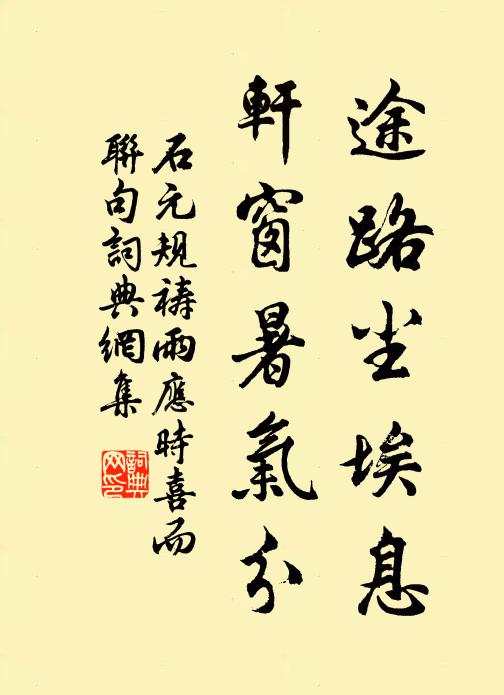 途路尘埃息
軒窗暑氣分
石元規禱雨應時喜而
聯句詞典網集
詞典网印